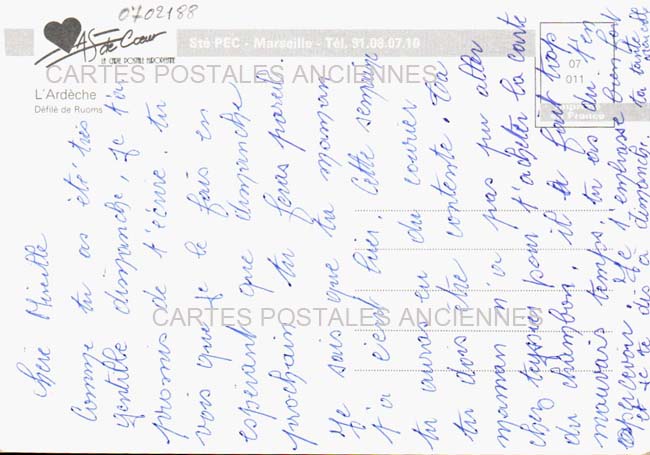 0702188
AS de Cœur
LA CARTE POSTALE EUROPEENNE
L'Ardèche
Défilé de Ruoms
Sté PEC - Marseille - Tél. 91.08.07.10
07
011
France
CARTES POSTALES ANCIENNES
CARTES POSTALES ANCIENNES
Chère Mireille
Comme tu as été très
gentille dimanche, je t'ai
promis de t'écrire. tu
vois que je le fais en
espérant que dimanche
prochain tu feras pareil.
Je sais que ta maman
t'a écrit hier. Cette semaine
tu auras eu du courier
tu dois être contente. Ta
maman n'a pas pu aller
chez pour t'acheter la carte
du chambon, il a fait trop
mauvais temps. tu as du t'en
apercevoir. Je t'embrasse bien fort
et je te dis à dimanche. ta tante